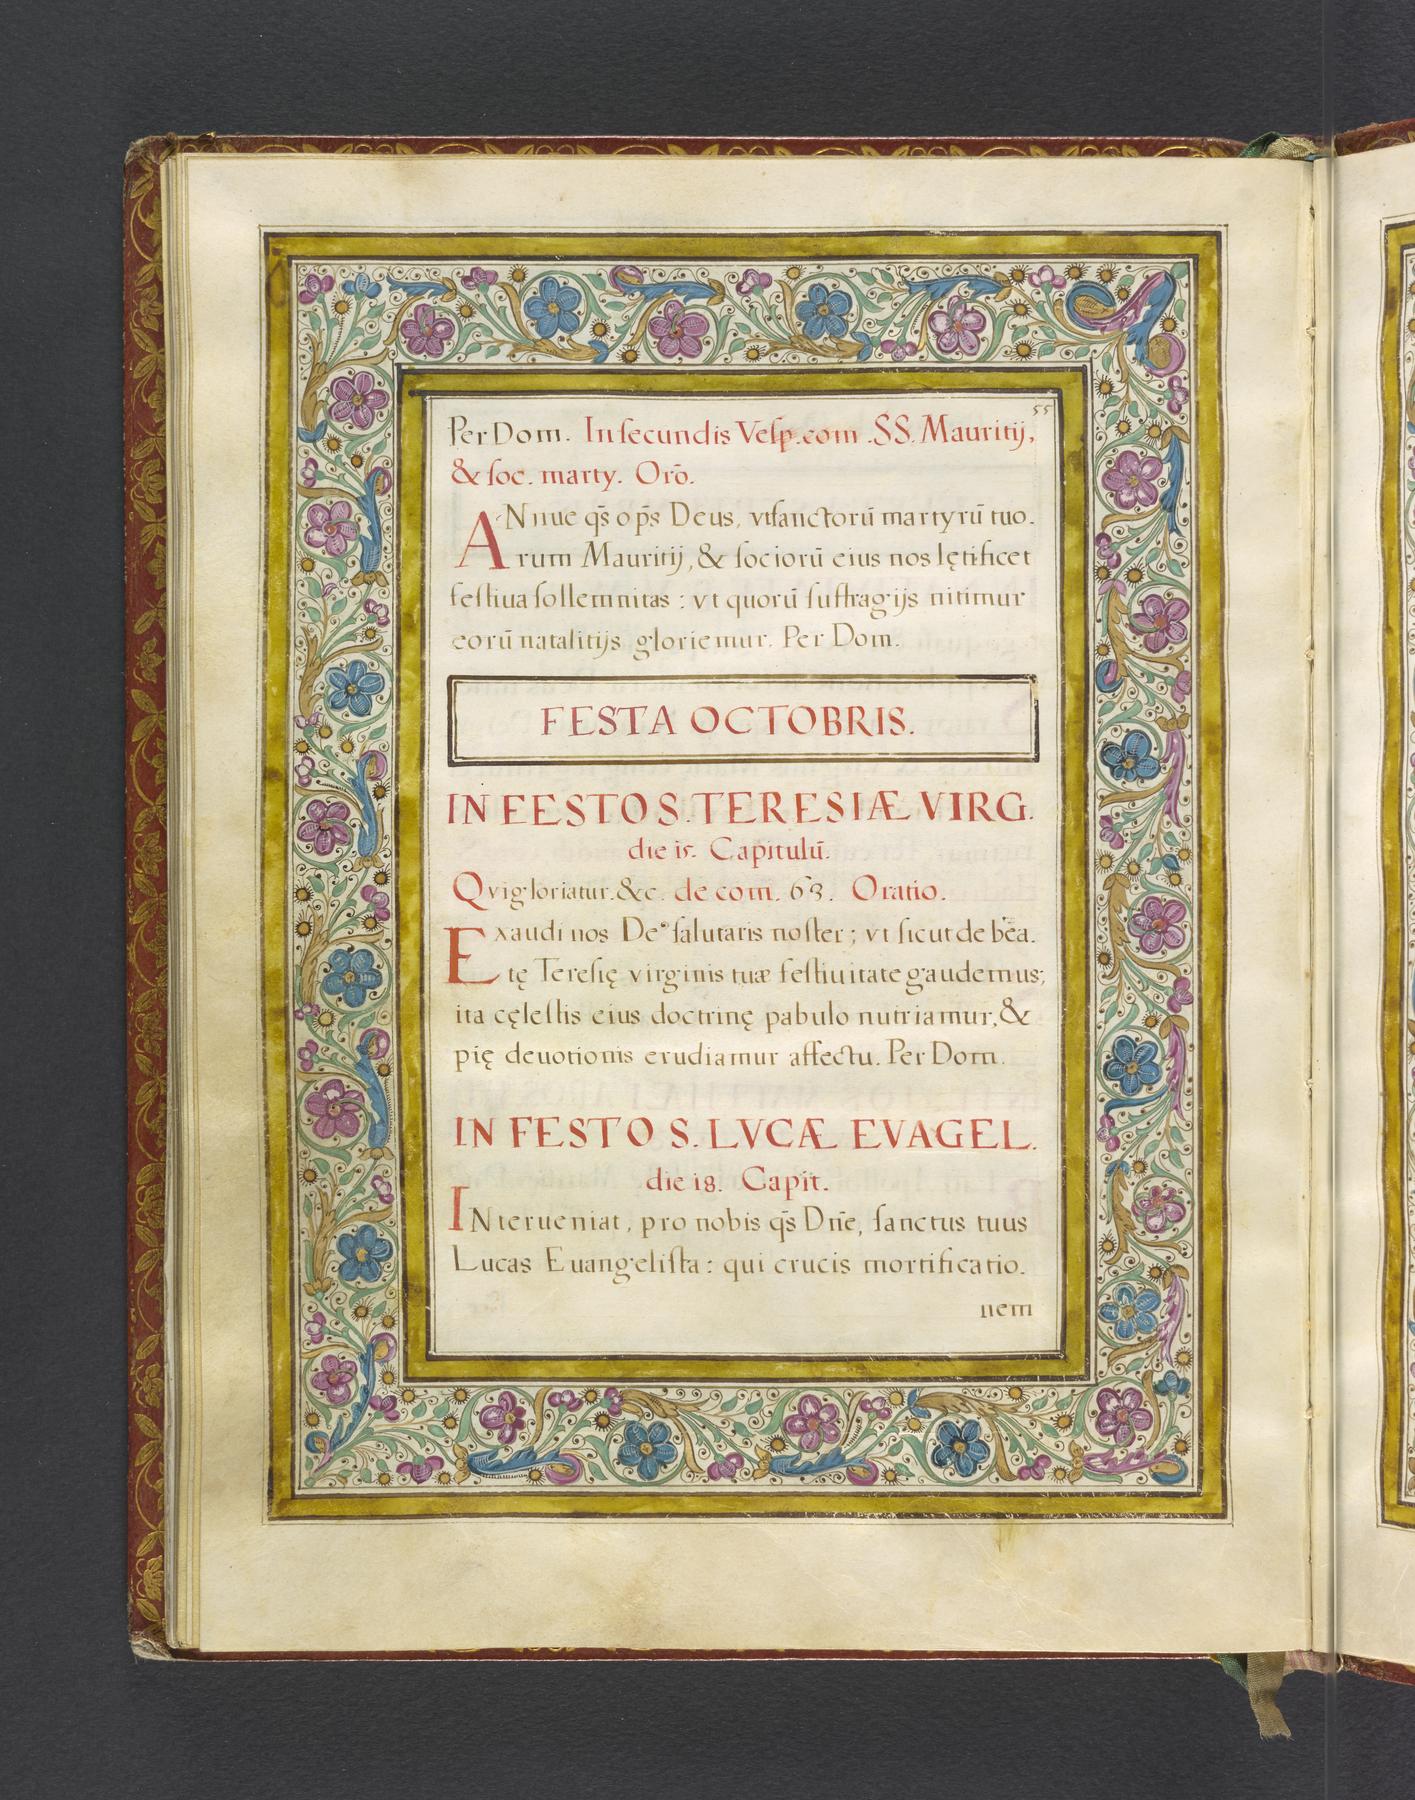 55
Per Dom. In secundis Vesp. com. SS. Mauritij,
& soc. marty. Orō.
ANnue qs̄ op̄s Deus, vt sanctorū martyrū tuo.
rum Mauritij, & sociorū eius nos lętificet
festiua sollemnitas : vt quorū suffragijs nitimur
eorū natalitijs gloriemur. Per Dom.
FESTA OCTOBRIS.
IN FESTO S. TERESIÆ VIRG.
die 15. Capitulū.
Qvi gloriatur. &c. de com. 63. Oratio.
Exaudi nos De⁹ salutaris noster ; vt sicut de bēa.
tę Teresię virginis tuæ festiuitate gaudemus;
ita cęlestis eius doctrinę pabulo nutriamur, &
pię deuotionis erudiamur affectu. Per Dom.
IN FESTO S. LVCÆ EVAGEL.
die 18. Capit.
INterueniat, pro nobis qs̄ Dn̄e, sanctus tuus
Lucas Euangelista : qui crucis mortificatio.
nem